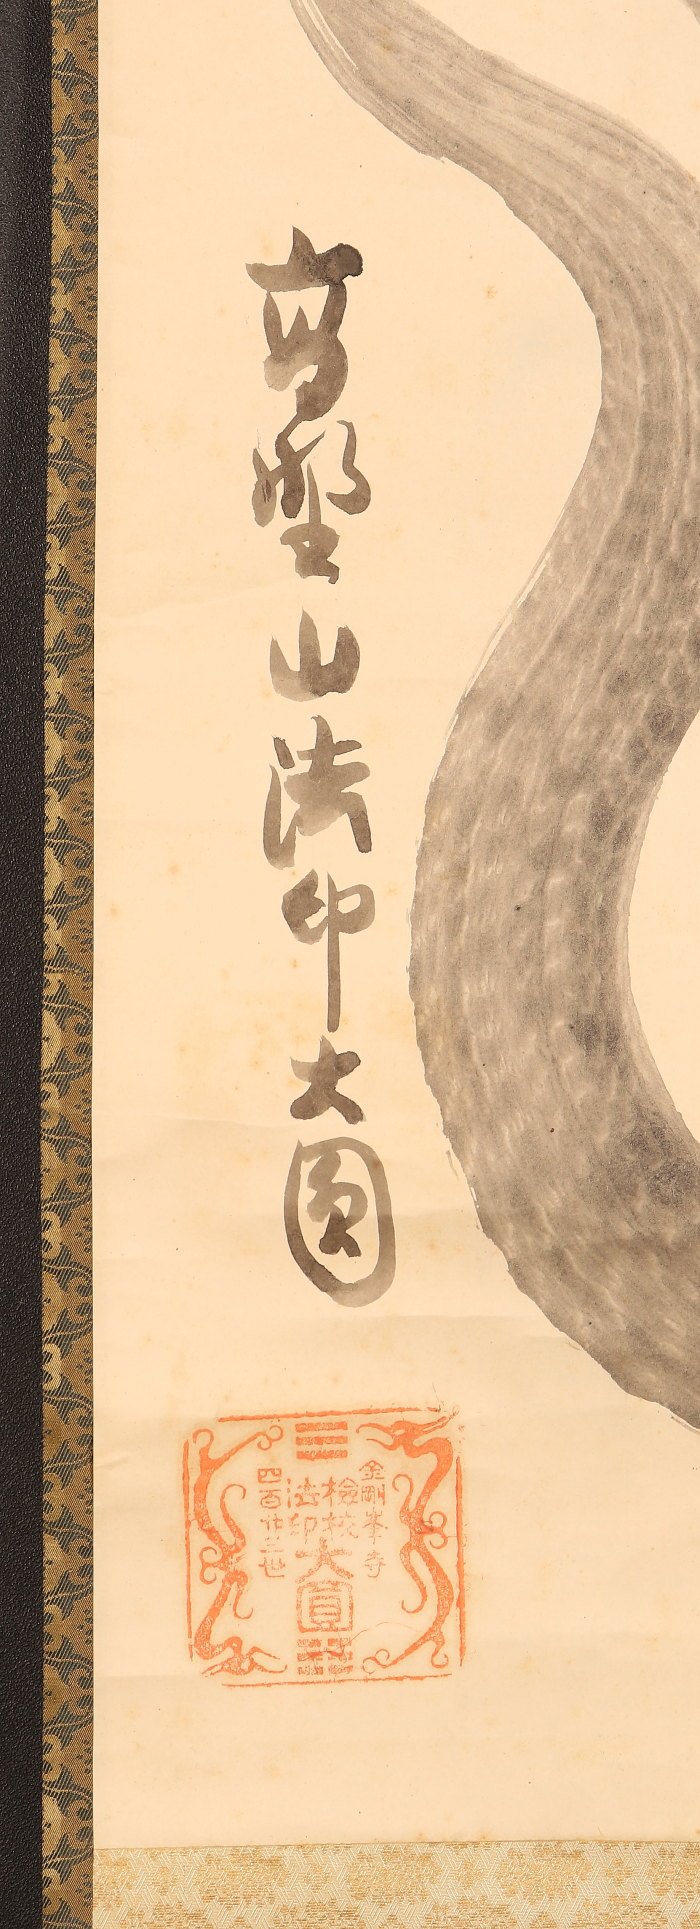 高野山法印大圓
金剛峯寺
検校
法印
大圓
四百廿三世